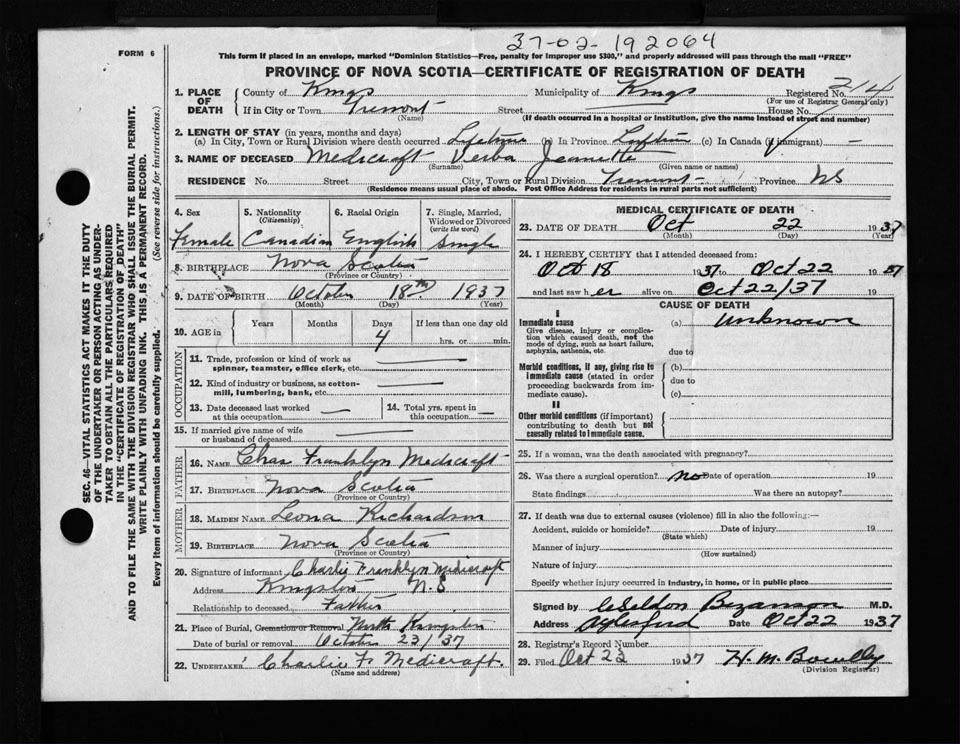 37-02-192064
FORM 6
This form if placed in an envelope, marked "Dominion Statistics—Free, penalty for improper use $300," and properly addressed will pass through the mail "FREE"
PROVINCE OF NOVA SCOTIA—CERTIFICATE OF REGISTRATION OF DEATH
1. PLACE OF DEATH County of Kings Municipality of Kings Registered No. 214
(For use of Registrar General only)
If in City or Town Tremont Street House No.
(Name) (If death occurred in a hospital or institution, give the name instead of street and number)
2. LENGTH OF STAY (in years, months and days)
(a) In City, Town or Rural Division where death occurred Lifetime (b) In Province Lifetime (c) In Canada (if immigrant) —
3. NAME OF DECEASED Medicraft Verba Jeanette
(Surname) (Given name or names)
RESIDENCE No. Street City, Town or Rural Division Tremont Province NS
(Residence means usual place of abode. Post Office Address for residents in rural parts not sufficient)
4. Sex 5. Nationality (Citizenship) 6. Racial Origin 7. Single, Married, Widowed or Divorced (write the word)
Female Canadian English Single
8. BIRTHPLACE Nova Scotia
(Province or Country)
9. DATE OF BIRTH October 18th 1937
(Month) (Day) (Year)
10. AGE in Years Months Days If less than one day old
4 hrs. or min.
OCCUPATION
11. Trade, profession or kind of work as spinner, teamster, office clerk, etc. —
12. Kind of industry or business, as cotton-mill, lumbering, bank, etc. —
13. Date deceased last worked at this occupation — 14. Total yrs. spent in this occupation —
15. If married give name of wife or husband of deceased —
FATHER
16. NAME Chas Franklyn Medicraft
17. BIRTHPLACE Nova Scotia
(Province or Country)
MOTHER
18. MAIDEN NAME Leona Richardson
19. BIRTHPLACE Nova Scotia
(Province or Country)
20. Signature of informant Charlie Franklyn Medicraft
Address Kingston N.S
Relationship to deceased Father
21. Place of Burial, Cremation or Removal North Kingston
Date of burial or removal October 23/37
22. UNDERTAKER Charlie F. Medicraft.
(Name and address)
MEDICAL CERTIFICATE OF DEATH
23. DATE OF DEATH Oct 22 1937
(Month) (Day) (Year)
24. I HEREBY CERTIFY that I attended deceased from:
Oct 18 1937 to Oct 22 1937
and last saw her alive on Oct 22/37 19
CAUSE OF DEATH
I
Immediate cause (a) Unknown
Give disease, injury or complication which caused death, not the mode of dying, such as heart failure, asphyxia, asthenia, etc.
due to
Morbid conditions, if any, giving rise to immediate cause (stated in order proceeding backwards from immediate cause).
(b)
due to
(c)
II
Other morbid conditions (if important) contributing to death but not causally related to immediate cause.
25. If a woman, was the death associated with pregnancy?
26. Was there a surgical operation? no Date of operation 19
State findings Was there an autopsy?
27. If death was due to external causes (violence) fill in also the following:—
Accident, suicide or homicide? Date of injury 19
(State which)
Manner of injury
(How sustained)
Nature of injury
Specify whether injury occurred in industry, in home, or in public place
Signed by Bezanson M.D.
Address Aylesford Date Oct 22 1937
28. Registrar's Record Number
29. Filed Oct 22 1937 H. M.
(Division Registrar)
SEC. 46—VITAL STATISTICS ACT MAKES IT THE DUTY
OF THE UNDERTAKER OR PERSON ACTING AS UNDER-
TAKER TO OBTAIN ALL THE PARTICULARS REQUIRED
IN THE "CERTIFICATE OF REGISTRATION OF DEATH"
AND TO FILE THE SAME WITH THE DIVISION REGISTRAR WHO SHALL ISSUE THE BURIAL PERMIT.
WRITE PLAINLY WITH UNFADING INK. THIS IS A PERMANENT RECORD.
Every item of information should be carefully supplied. (See reverse side for instructions.)